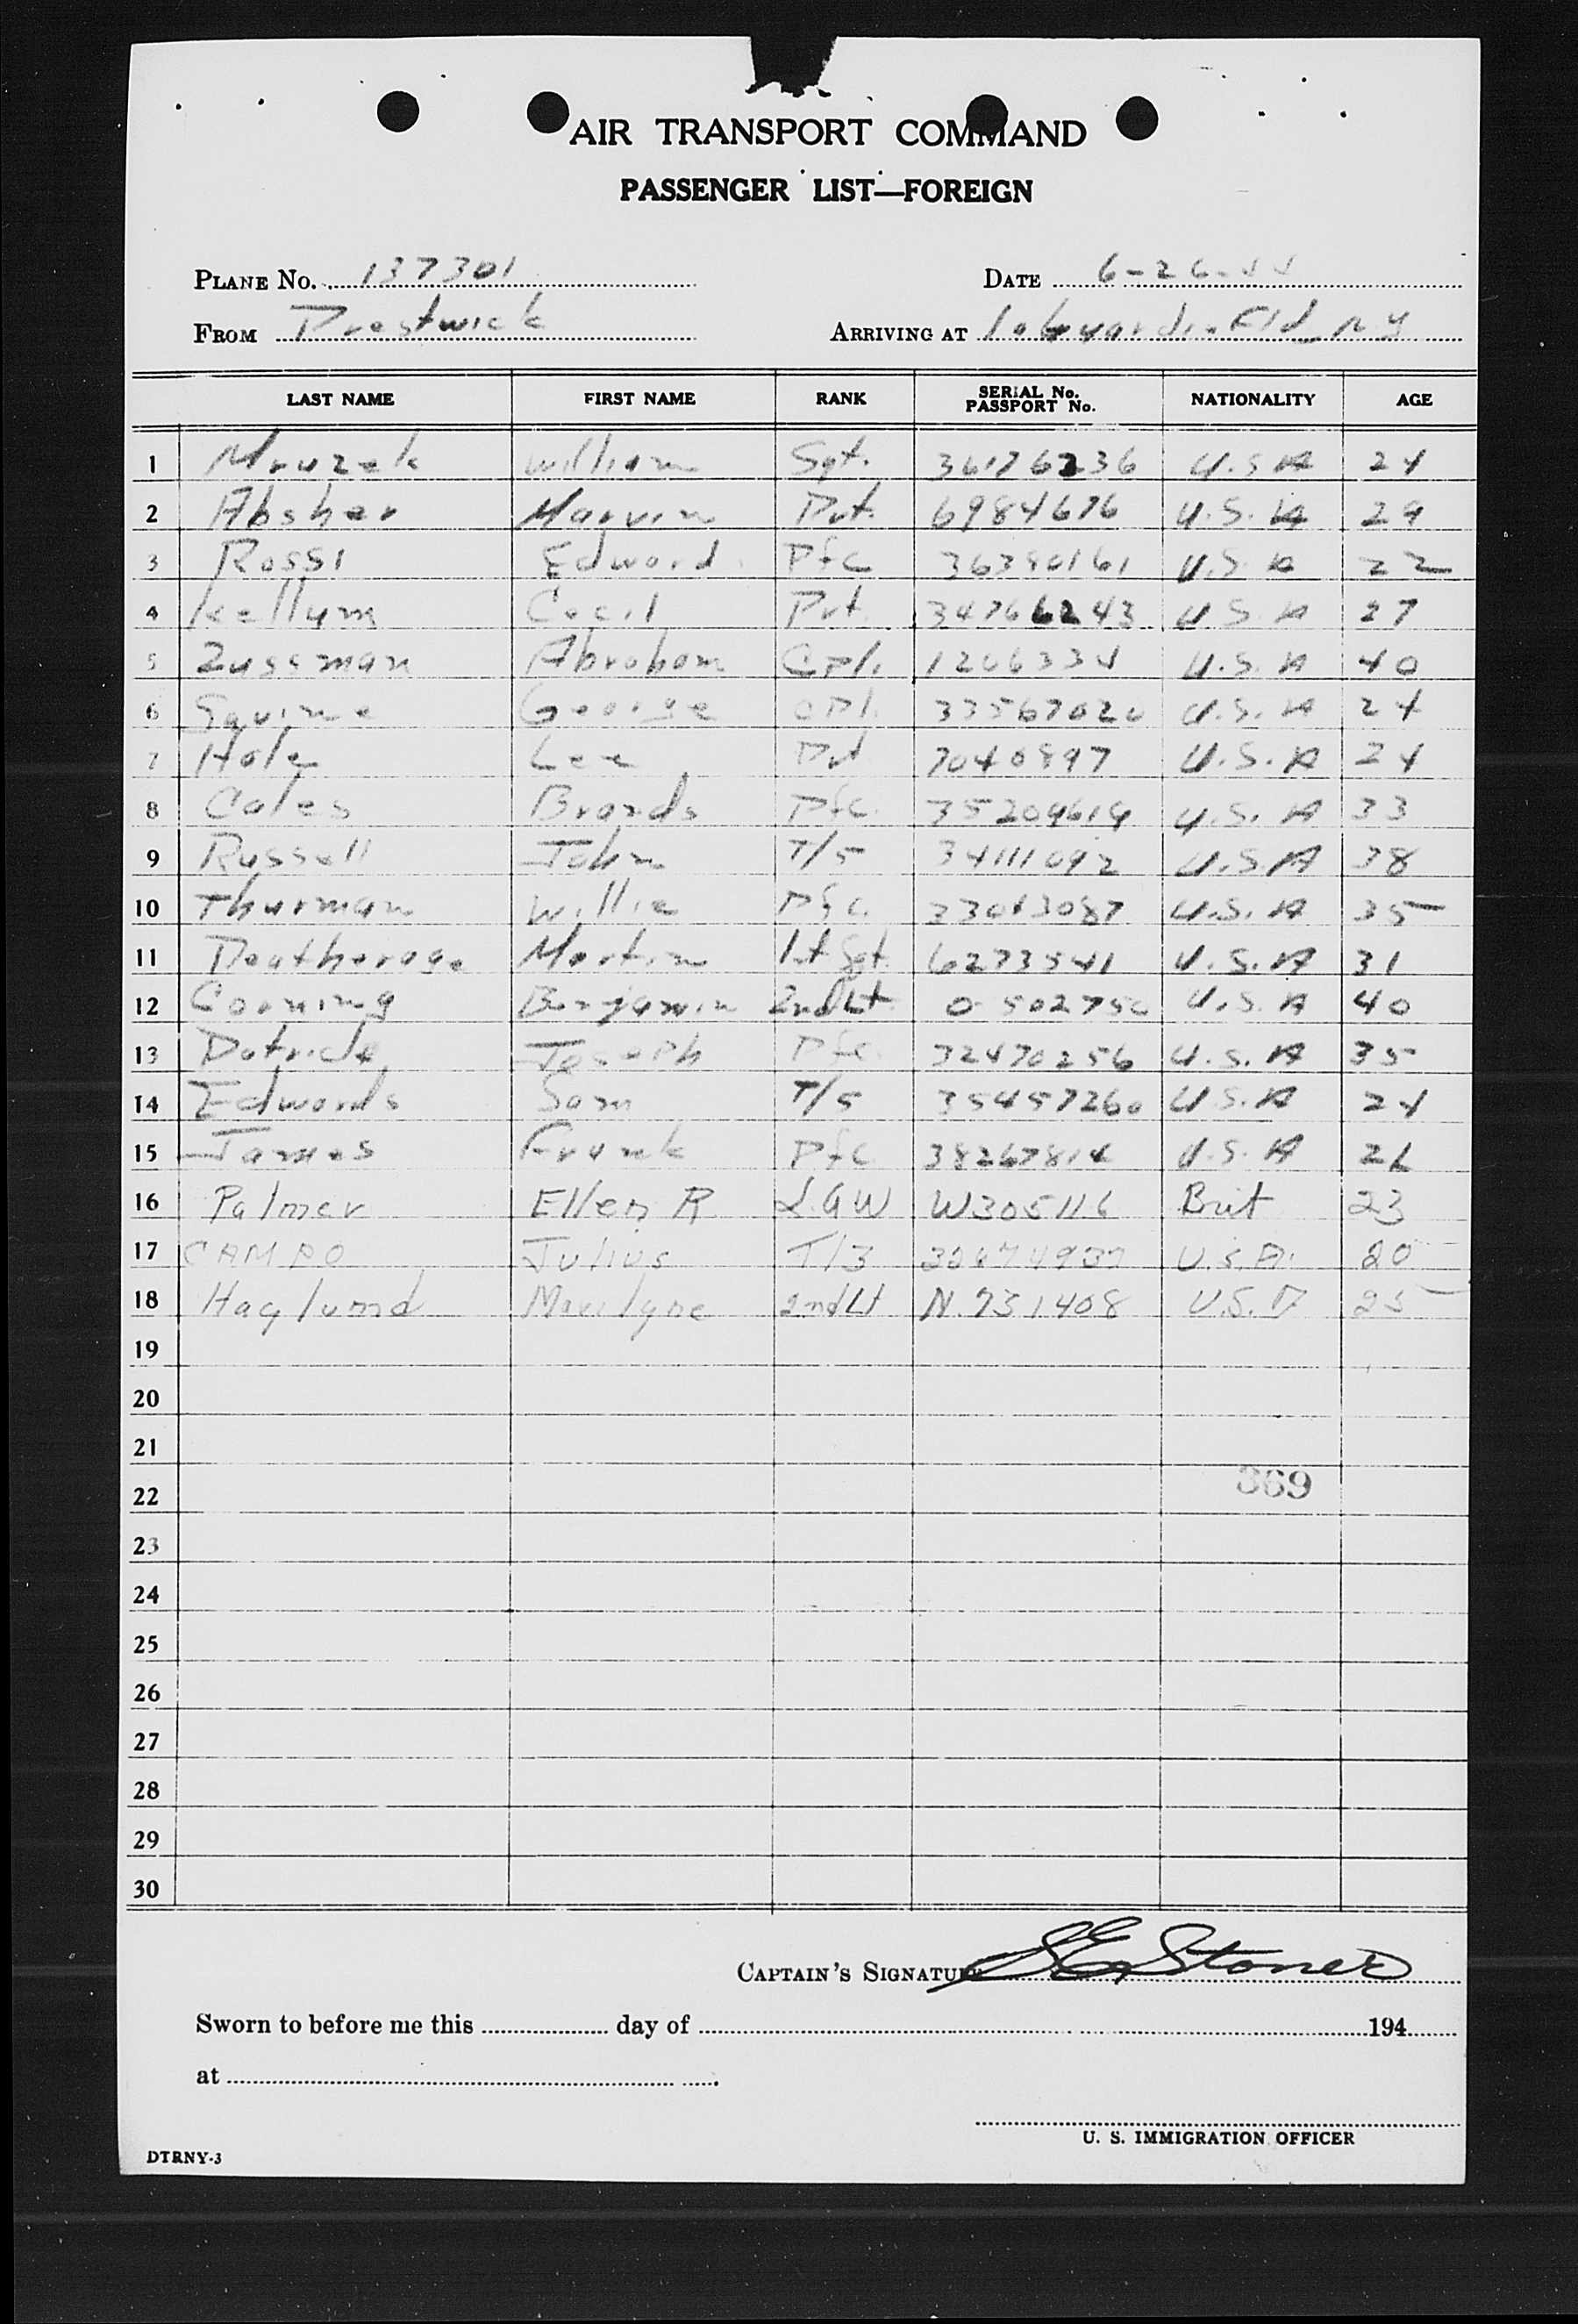 AIR TRANSPORT COMMAND
PASSENGER LIST—FOREIGN
PLANE No. 137301 DATE 6-26-44
FROM Prestwick ARRIVING AT LaGuardia Fld N.Y
LAST NAME FIRST NAME RANK SERIAL No. PASSPORT No. NATIONALITY AGE
1 Mruzek William Sgt. 36176236 U.S.A 24
2 Absher Marvin Pvt. 6984676 U.S.A 29
3 Rossi Edward Pfc 36390161 U.S.A 22
4 Kellum Cecil Pvt. 34766243 U.S.A 27
5 Zussman Abraham Cpl. 1206334 U.S.A 40
6 George Cpl. 33567020 U.S.A 24
7 Lee Pvt 7040897 U.S.A 24
8 Coles Brands Pfc. 35209619 U.S.A 33
9 Russell John T/5 34111092 U.S.A 38
10 Thurman Willie Pfc. 33013087 U.S.A 35
11 Deatherage Martin 1st Sgt. 6273541 U.S.A 31
12 Corning Benjamin 2nd Lt. O-502750 U.S.A 40
13 Joseph Pfc. 32470256 U.S.A 35
14 Edwards Sam T/5 35457260 U.S.A 24
15 James Frank Pfc 38267814 U.S.A 21
16 Palmer Ellen R L.A.W W305116 Brit 23
17 CAMPO Julius T/3 32674937 U.S.A. 20
18 Haglund Marilyne 2nd Lt N.731408 U.S.A 25
19
20
21
22 369
23
24
25
26
27
28
29
30
CAPTAIN'S SIGNATURE S E Stoner
Sworn to before me this day of 194
at
U. S. IMMIGRATION OFFICER
DTRNY-3